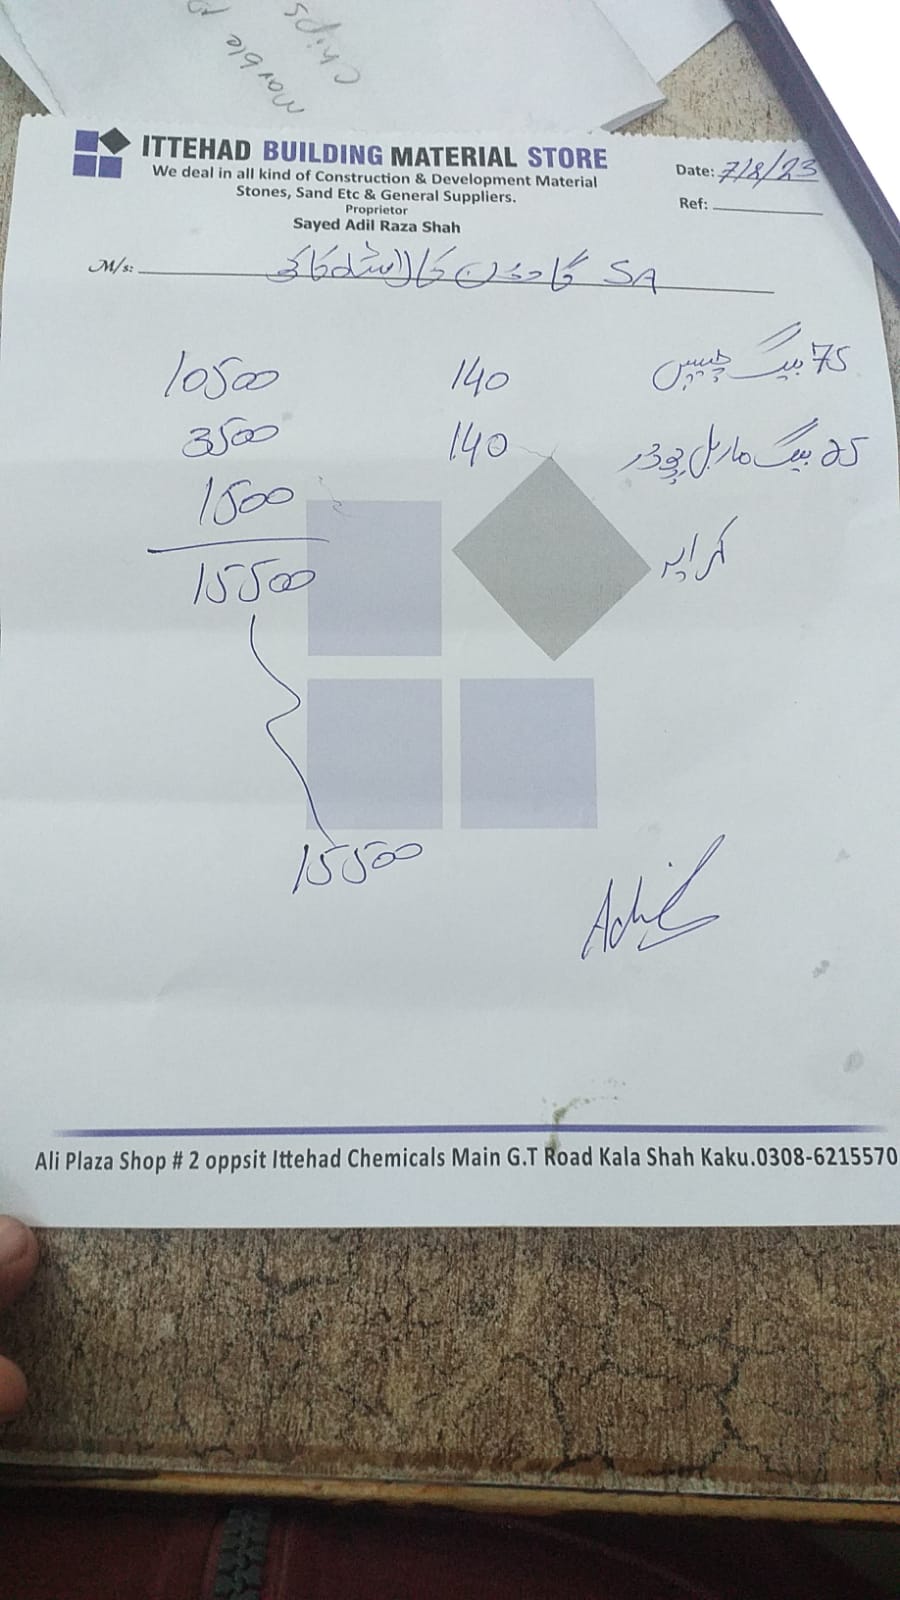 Marble
Chips
ITTEHAD BUILDING MATERIAL STORE
We deal in all kind of Construction & Development Material
Stones, Sand Etc & General Suppliers.
Proprietor
Sayed Adil Raza Shah
Date: 7/8/23
Ref:
M/s: SA گارڈن کالا شاہ کاکو
75 بیگ چپس 140 10500
25 بیگ ماربل پوڈر 140 3500
کرایہ 1500
15500
15500
Adil
Ali Plaza Shop # 2 oppsit Ittehad Chemicals Main G.T Road Kala Shah Kaku.0308-6215570